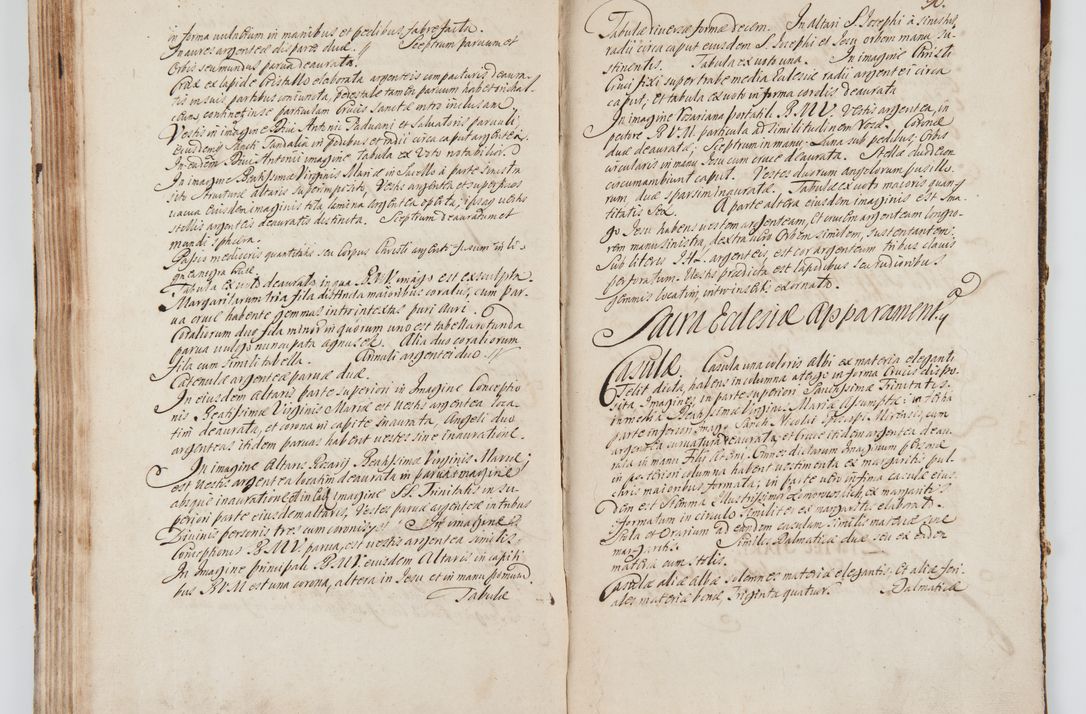 in forma vulnerum in manibus et pedibus fabrefacta.
Inaures argenteæ dispares duæ. Sceptrum parvum et
Orbis seu mundus parva deaurata.
Crux ex lapide Cristallo elaborata argenteis compacturis deaura-
tis in suis partibus coniuncta, pedestale tamen parvum habet orichal-
continet in se particulam Crucis Sanctæ intro inclusam.
Vestis in imagine Divi Antonii Paduani et Salvatoris parvuli
eiusdem Sancti Sandalia in pedibus et radii circa caput argentea.
In eadem Divi Antonii imagine Tabula ex Voto notabilior.
In imagine Beatissimæ Virginis Mariæ in Sacello à parte sinistra
sito Structuræ altaris superimposito, Vestis argentea et superficies
vacua eiusdem imaginis tota lamina argentea oppleta, ipsaq vestis
stellis argenteis deauratis distincta. Sceptrum deauratum et
mundi sphæra.
Passio mediocris quantitatis seu Corpus Christi argenteum in li-
gnea nigra Cruce.
Tabula ex voto deaurata in qua B.M.V. imago est exsculpta.
Margaritarum tria fila distincta maioribus coralus, cum par-
va cruce habente gemmas intrintextas puri auri.
Coraliorum duo fila minora in quorum uno est tabella rotunda
parva vulgo nuncupata agnusek. Alia duo coraliorum
fila cum simili tabella. Annuli argentei duo.
Catenulæ argenteæ parvæ duæ.
In eiusdem altaris parte superiori in Imagine Conceptio-
nis Beatissimæ Virginis Mariæ est Vestis argentea loca-
tim deaurata, et corona in capite inaurata, Angeli duo
argenteas itidem parvas habent vestes sine inauratione.
In imagine Altaris Rosarij Beatissimæ Virginis Mariæ
est Vestis argentea locatim deaurata in parva imagine
absque inauratione et in imagine SS. Trinitatis in su-
periori parte eiusdem altaris, Vestes parvæ argenteæ in tribus
Divinis personis tres cum coronis. In imagine
Conceptionis B.M.V. parva, est vestis argentea similis.
In Imagine principali B.M.V. eiusdem Altaris in capiti-
bus B.V.M. est una corona, altera in Jesu et in manu pomum.
Tabulæ
Tabulæ diversæ formæ decem. In altari S. Josephi à sinistris
radii circa caput eiusdem S. Josephi et Jesu orbem manu su-
stinentis. Tabula ex voto una. In imagine Christi
Cruci fixi super trabe media Eclesiæ radii argentei circa
caput; et tabula ex voto in forma cordis deaurata
In imagine Rozariana portatili B.M.V. Vestis argentea, in
pectore B.V.M. particula ad similitudinem Rosæ. Coronæ
duæ deauratæ, Sceptrum in manu, Luna sub pedibus, Orbis
circularis in manu Jesu cum cruce deaurata. Stellæ duodecim
circumambiunt caput. Vestes duorum angelorum pusillo-
rum, duæ sparsim inauratæ. Tabulæ ex voto maioris quan-
titatis Sex. A parte altera eiusdem imaginis est Ima-
go Jesu habens vestem argenteam, et crucem argenteam longio-
rem manu sinistra, dextra vero Orbem similem, sustentantem.
Sub literis J.H. argenteis, est cor argenteum tribus clavis
perforatum. Vestis prædicta est lapidibus seu rudioribus
gemmis locatim, intro insertis exornata.
Sacra Eclesiæ Apparamenta
Casulæ. Casula una coloris albi ex materia eleganti
Telit dicta, habens in columna à tergo in forma Crucis dispo-
sita Imagines, in parte superiori Sanctissimæ Trinitatis.
in media Beatissimæ Virginis Mariæ Assumptæ: in tertia
parte inferiori Imago Sancti Nicolai Episcopi Mirensis, cum
argentea curvatura deaurata, et cruce itidem argentea deau-
rata in manu Filii Divini. Omnes dictarum Imaginum personæ
in posteriori columna habent vestimenta ex margaritis pul-
chris maioribus formata; in parte vero infima casulæ eius-
dem est Stemma Illustrissimæ Domorum Lub, ex margaritis
formatum in circulo similiter ex margaritis elaborato.
Stola et Orarium ad eandem casulam similis materiæ sine
margaritis. Similes Dalmaticæ duæ seu ex eadem
materia cum stolis.
Casulæ aliæ albæ solennes materiæ elegantis, et aliæ feri-
ales materiæ bonæ, Triginta quatuor. Dalmaticæ